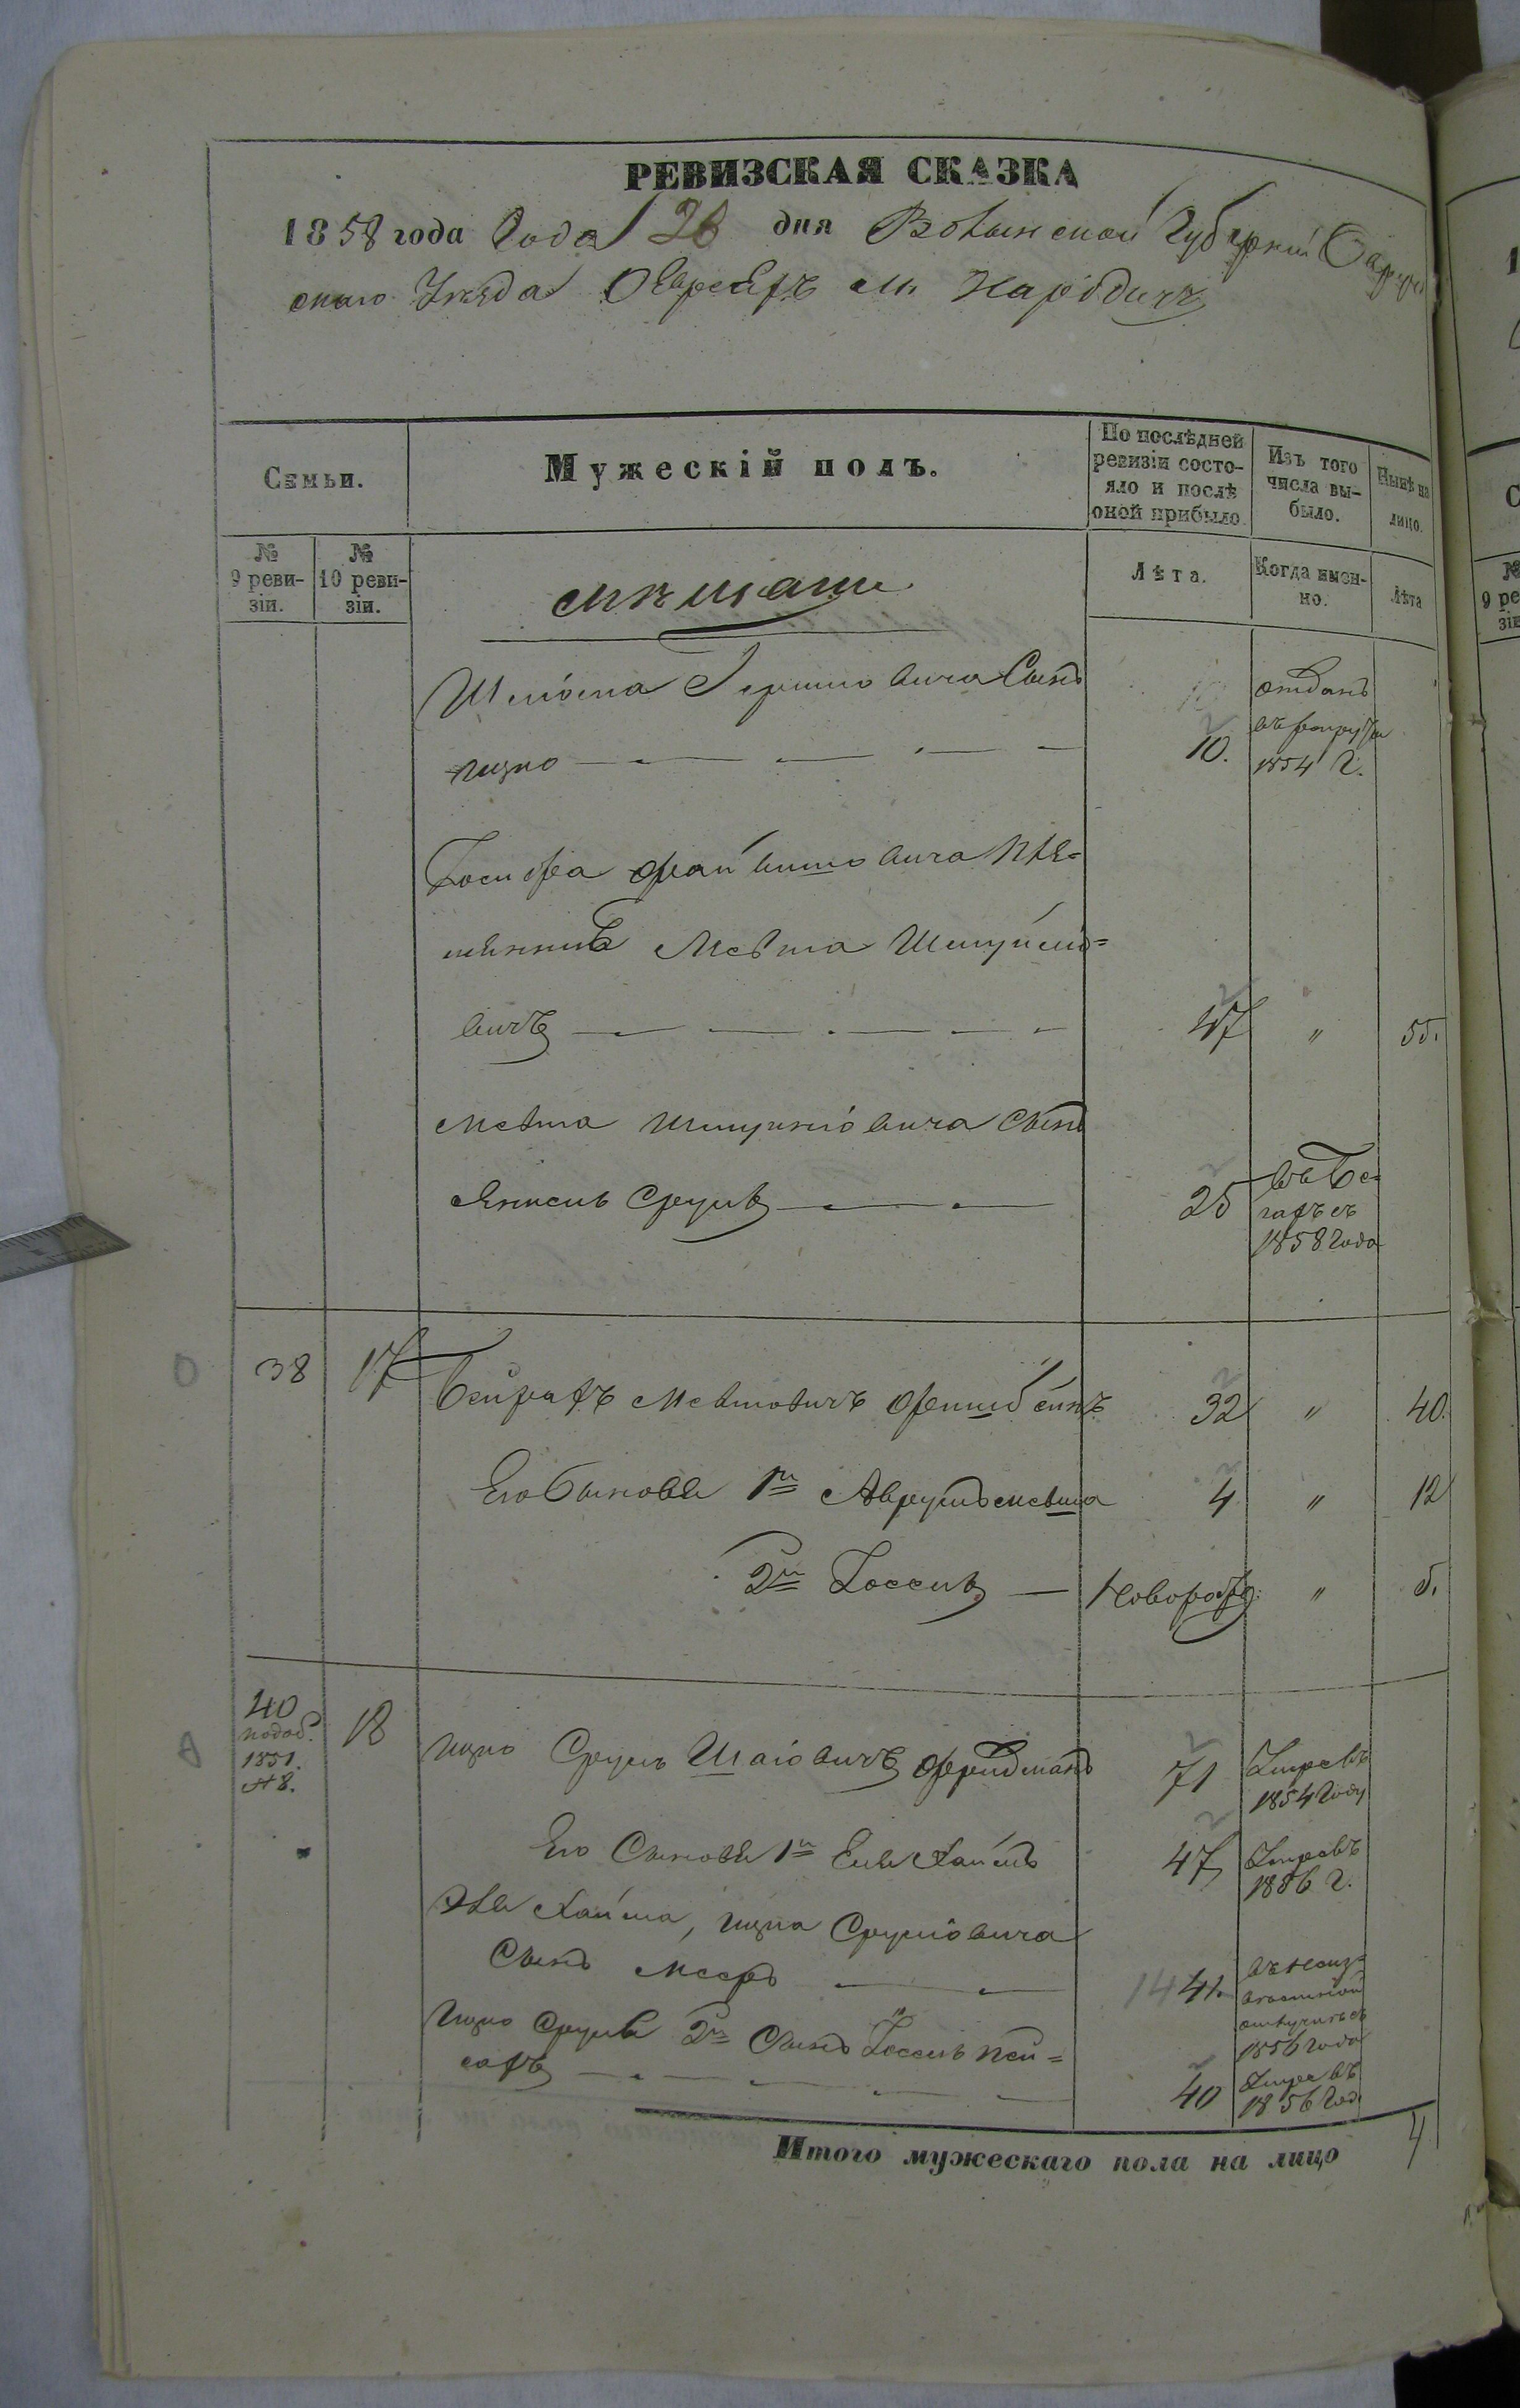 РЕВИЗСКАЯ СКАЗКА
1858 года Года 28 дня Волынской Губерніи Овруч
скаго Уезда О Евреяхъ м. Народичъ
Семьи.
Мужескій полъ.
По послѣдней ревизіи состо-
яло и послѣ
оной прибыло.
Изъ того
числа вы-
было.
Нынѣ на
лицо.
№
9 реви-
зіи.
№
10 реви-
зіи.
мѣщане
Лѣта.
Когда имен-
но.
Лѣта
Шлiома Гершковича Сынъ
Ицко 10. отданъ
въ рекруты
1854 г.
Іосифа Файвишовича пле=
менникъ Мовша Шмуйло=
вичъ 47 " 55.
Мовша Шмуйловича Сынъ
Янкель Сруль 25 въ бе-
гахъ съ
1858 года
38 17 Бейрахъ Мовшовичъ Фишбейнъ 32 " 40.
Его Сыновья 1й Аврумъ Мовша 4 " 12
2й Іоссель Новорожд: " 5.
40
1851.
№ 8.
18 Ицко Сруль Шаiовичъ Фридманъ 71 Умре въ
1854 году
Его Сыновья 1й Еля Хаимъ 47 Умре въ
1856 г.
Эля Хаима, Ицка Срулiовича
Сынъ Мееръ 14 41. въ неиз=
вѣстной
отлучкѣ съ
1856 года
Ицко Сруля 2й Сынъ Іоссель Пей=
сахъ 40 Умре въ
1856 год
Итого мужескаго пола на лицо 4